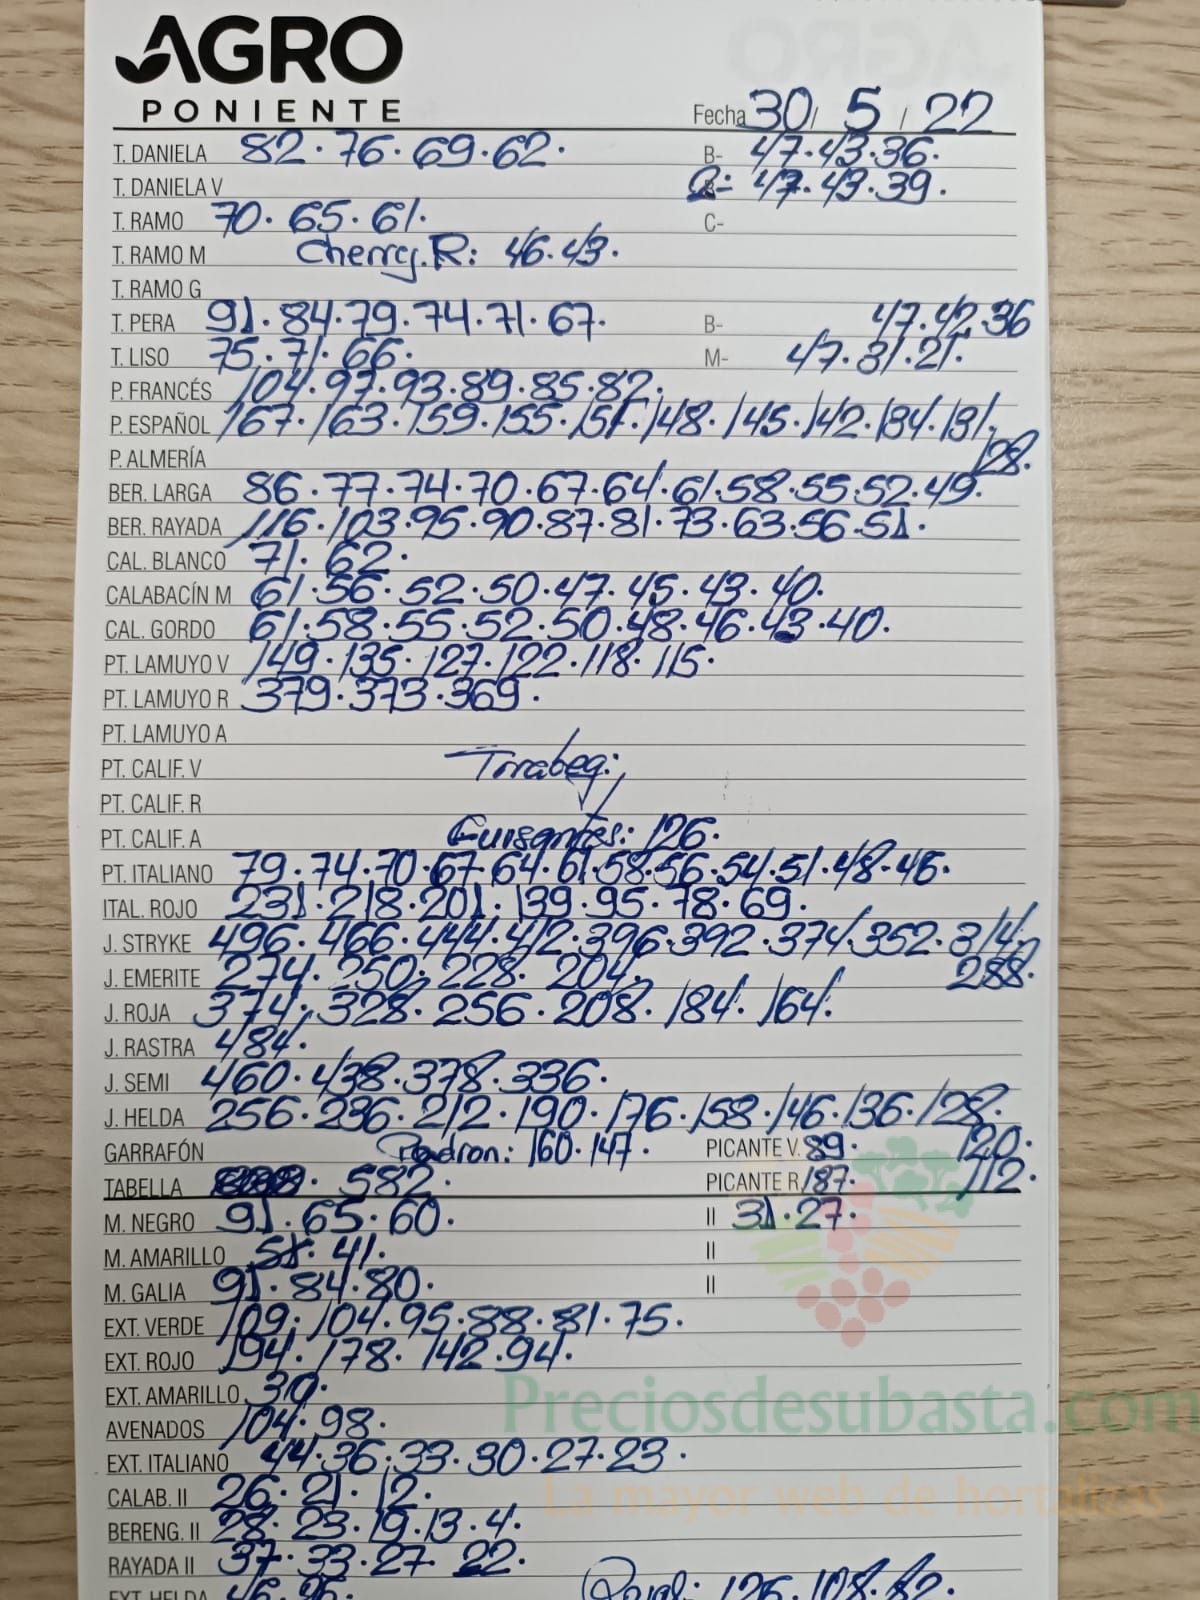 AGRO
PONIENTE
Fecha 30/ 5 / 22
T. DANIELA 82.76.69.62. B- 47.43.36.
T. DANIELA V 47.43.39.
T. RAMO 70.65.61. C-
T. RAMO M Cherry.R: 46.43.
T. RAMO G
T. PERA 91.84.79.74.71.67. B- 47.42.36
T. LISO 75.71.66. M- 47.31.21.
P. FRANCÉS 104.97.93.89.85.82.
P. ESPAÑOL 167.163.159.155.151.148.145.142.134.131.
P. ALMERÍA 128.
BER. LARGA 86.77.74.70.67.64.61.58.55.52.49.
BER. RAYADA 116.103.95.90.87.81.73.63.56.51.
CAL. BLANCO 71.62.
CALABACÍN M 61.56.52.50.47.45.43.40.
CAL. GORDO 61.58.55.52.50.48.46.43.40.
PT. LAMUYO V 149.135.127.122.118.115.
PT. LAMUYO R 379.373.369.
PT. LAMUYO A
PT. CALIF. V Tirabeq:
PT. CALIF. R
PT. CALIF. A Guisantes: 126.
PT. ITALIANO 79.74.70.67.64.61.58.56.54.51.48.46.
ITAL. ROJO 231.218.201.139.95.78.69.
J. STRYKE 496.466.444.412.396.392.374.352.314.
J. EMERITE 274.250.228.204. 288.
J. ROJA 374.328.256.208.184.164.
J. RASTRA 484.
J. SEMI 460.438.378.336.
J. HELDA 256.236.212.190.176.158.146.136.128.
GARRAFÓN Padron: 160.147. PICANTE V. 89. 120.
TABELLA 582. PICANTE R. 187. 112.
M. NEGRO 91.65.60. II 31.27.
M. AMARILLO 51.41. II
M. GALIA 91.84.80. II
EXT. VERDE 109.104.95.88.81.75.
EXT. ROJO 194.178.142.94.
EXT. AMARILLO 30.
AVENADOS 104.98.
Preciosdesubasta.com
EXT. ITALIANO 44.36.33.30.27.23.
CALAB. II 26.21.12.
La mayor web de hortalizas
BERENG. II 28.23.19.13.4.
RAYADA II 37.33.27 22.
EXT HELDA 126.108.82.